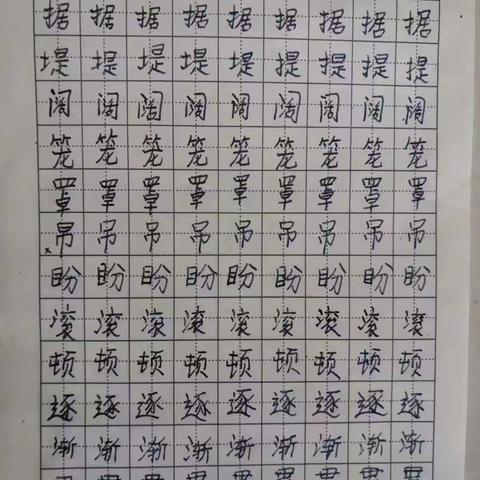 据 据 据 据 据 据 据 据 据
堤 堤 堤 堤 堤 堤 堤 堤 堤
阔 阔 阔 阔 阔 阔 阔 阔 阔
笼 笼 笼 笼 笼 笼 笼 笼 笼
罩 罩 罩 罩 罩 罩 罩 罩 罩
吊 吊 吊 吊 吊 吊 吊 吊
盼 盼 盼 盼 盼 盼 盼 盼 盼
滚 滚 滚 滚 滚 滚 滚 滚 滚
顿 顿 顿 顿 顿 顿 顿 顿 顿
逐 逐 逐 逐 逐 逐 逐 逐 逐
渐 渐 渐 渐 渐 渐 渐 渐 渐